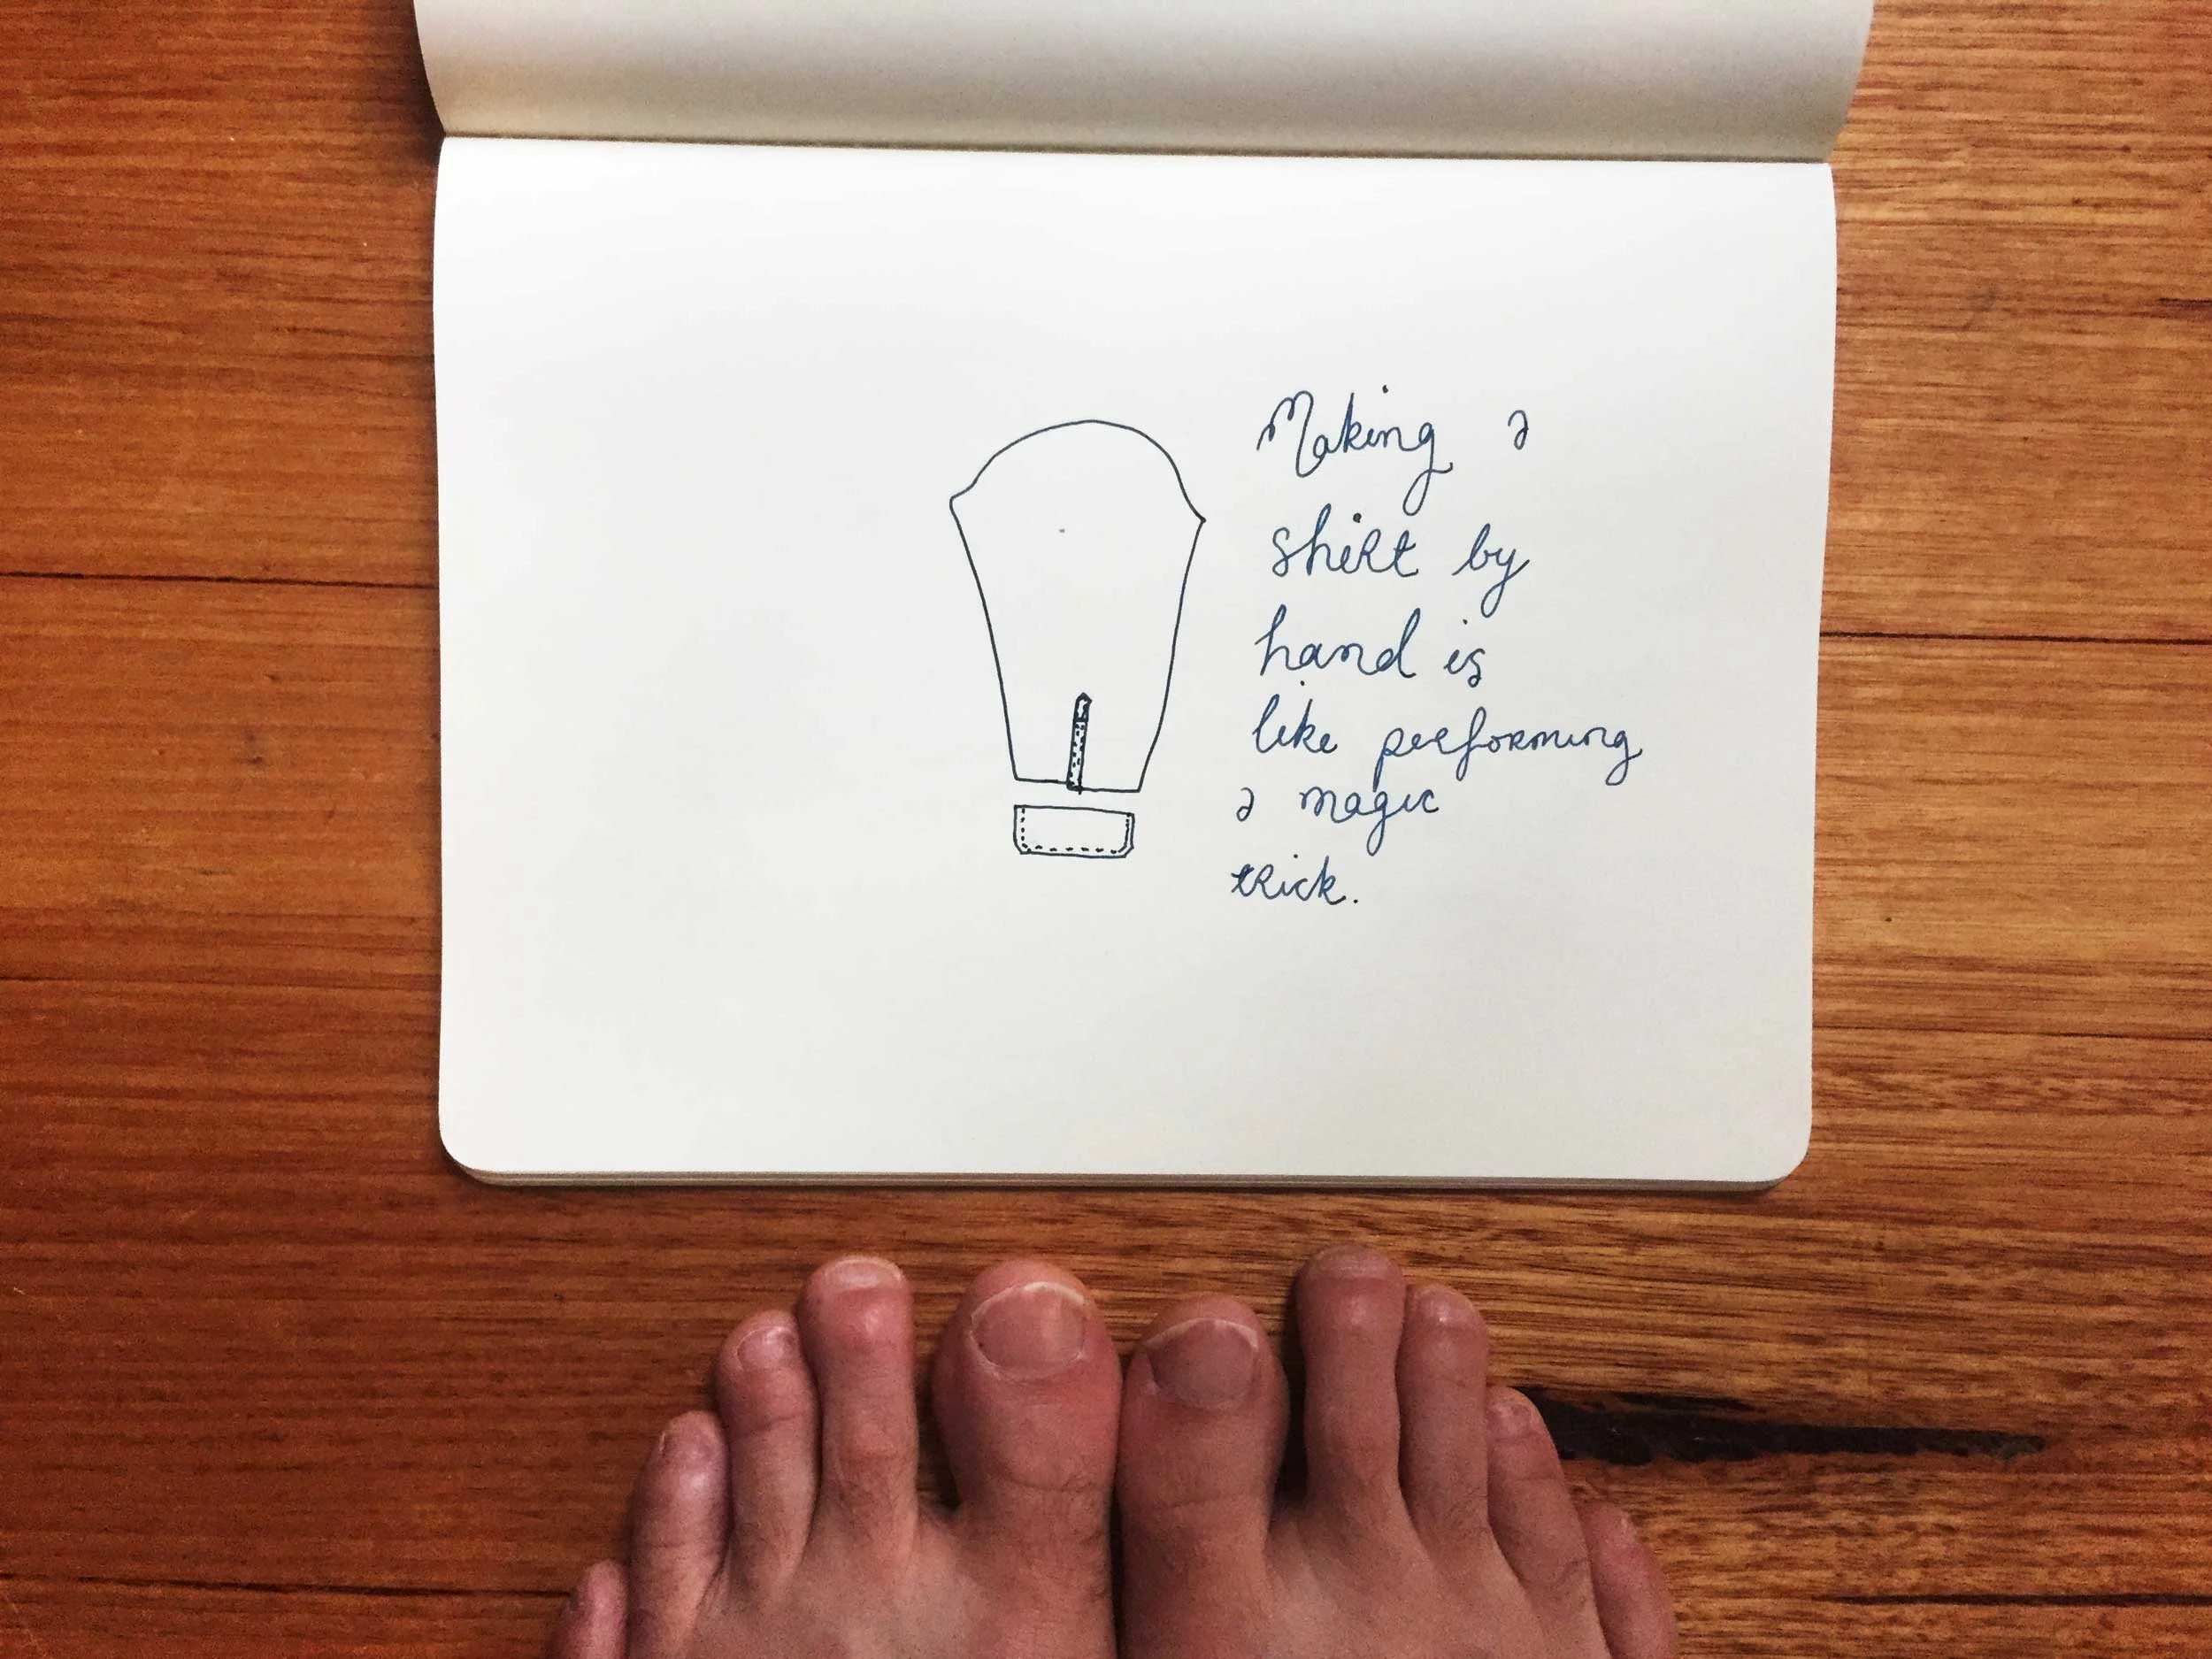 Making a
shirt by
hand is
like performing
a magic
trick.